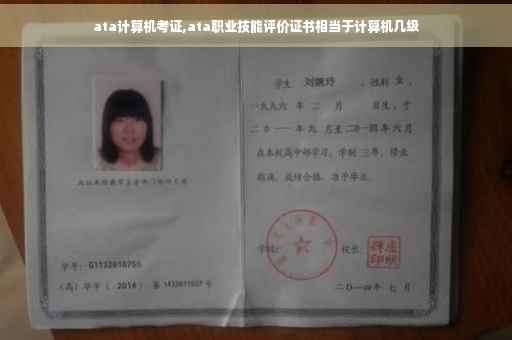 ata计算机考证,ata职业技能评价证书相当于计算机几级
学生 刘婉玲 ，性别 女 ，
一九九六 年 二 月 日生，于
二〇一一年九 月至二〇一四年 六 月
在本校高中部学习，学制 三 年，修业
期满，成绩合格，准予毕业。
学号： G1132010755
（高）毕字（ 2014 ）第 1432011037 号
校长：
二〇一四年 七 月